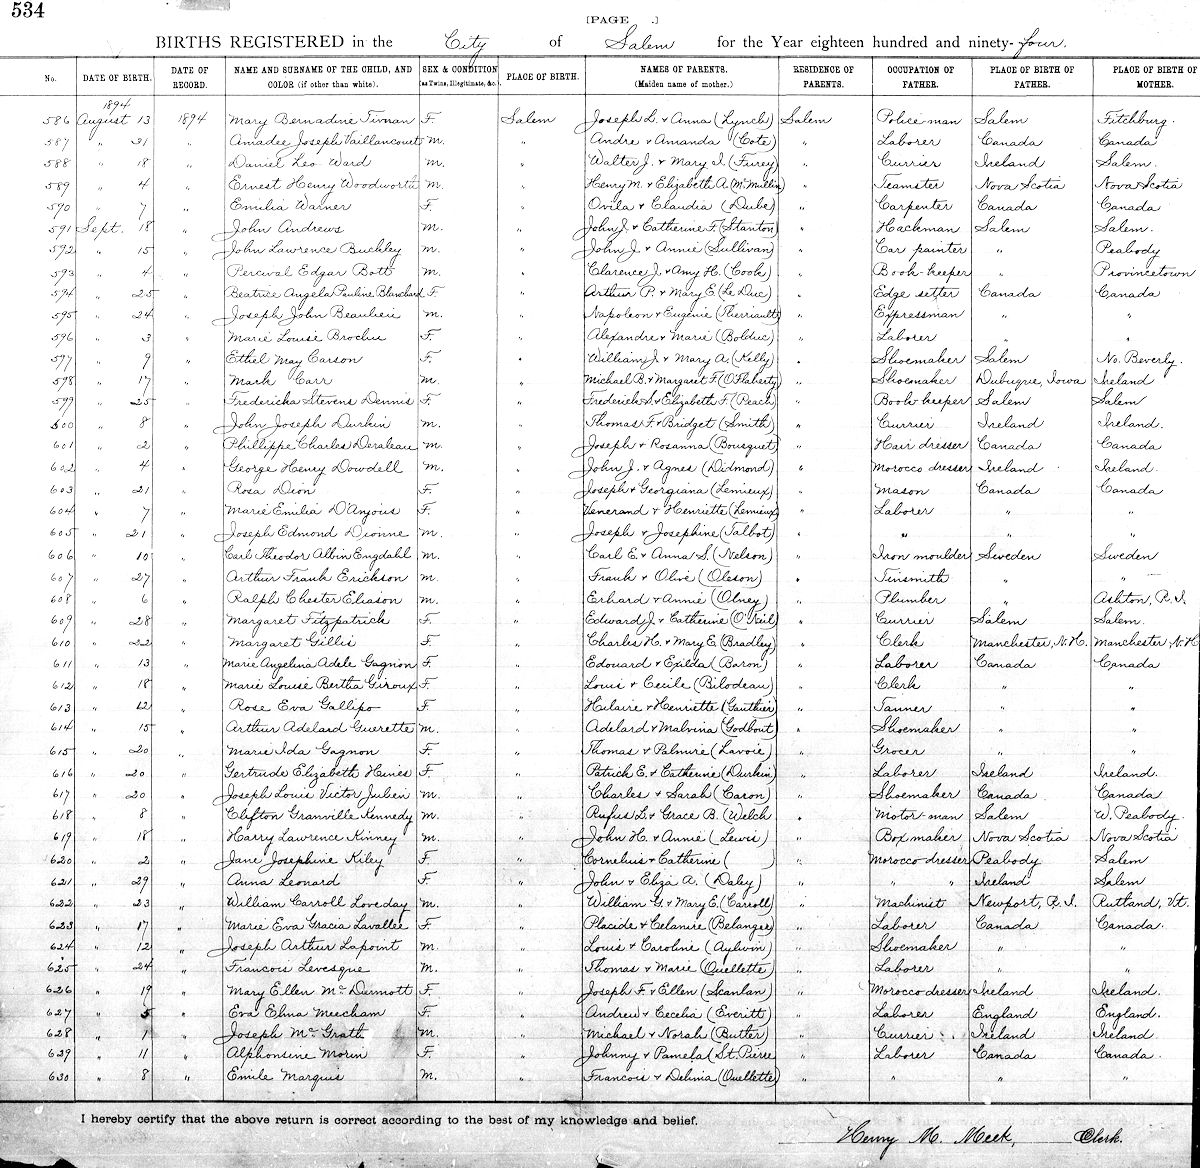 534
[PAGE .]
BIRTHS REGISTERED in the City of Salem for the Year eighteen hundred and ninety-four.
No. DATE OF BIRTH. DATE OF RECORD. NAME AND SURNAME OF THE CHILD, AND COLOR (if other than white). SEX & CONDITION (as Twins, Illegitimate, &c.) PLACE OF BIRTH. NAMES OF PARENTS. (Maiden name of mother.) RESIDENCE OF PARENTS. OCCUPATION OF FATHER. PLACE OF BIRTH OF FATHER. PLACE OF BIRTH OF MOTHER.
1894
586 August 13 1894 Mary Bernadine Tivnan F. Salem Joseph L. & Anna (Lynch) Salem Police-man Salem Fitchburg.
587 " 21 " Amadee Joseph Vaillancourt M. " Andre & Amanda (Cote) " Laborer Canada Canada
588 " 18 " Daniel Leo Ward M. " Walter J. & Mary I. (Furey) " Currier Ireland Salem.
589 " 4 " Ernest Henry Woodworth M. " Henry M. & Elizabeth A. (McMullin) " Teamster Nova Scotia Nova Scotia
590 " 7 " Emilia Warner F. " Ovila & Claudia (Dube) " Carpenter Canada Canada
591 Sept. 18 " John Andrews M. " John J. & Catherine F. (Stanton) " Hackman Salem Salem.
592 " 15 " John Lawrence Buckley M. " John J. & Annie (Sullivan) " Car painter " Peabody
593 " 4 " Percival Edgar Bott M. " Clarence J. & Amy H. (Cook) " Book-keeper " Provincetown
594 " 25 " Beatrice Angela Pauline Blanchard F. " Arthur P. & Mary E. (Le Duc) " Edge setter Canada Canada
595 " 24 " Joseph John Beaulieu M. " Napoleon & Eugenie (Therriault) " Expressman " "
596 " 3 " Marie Louise Brochu F. " Alexandre & Marie (Bolduc) " Laborer " "
597 " 9 " Ethel May Carson F. " William J. & Mary A. (Kelly) " Shoemaker Salem No. Beverly.
598 " 17 " Mark Carr M. " Michael B. & Margaret F. (O'Flaherty) " Shoemaker Dubuque, Iowa Ireland
599 " 25 " Fredericka Stevens Dennis F. " Frederick S. & Elizabeth F. (Peach) " Book-keeper Salem Salem
500 " 8 " John Joseph Durkin M. " Thomas F. & Bridget (Smith) " Currier Ireland Ireland.
601 " 2 " Phillippe Charles Deraleau M. " Joseph & Rosanna (Bousquet) " Hair dresser Canada Canada
602 " 4 " George Henry Dowdell M. " John J. & Agnes (Didmond) " Morocco dresser Ireland Ireland.
603 " 21 " Rosa Dion F. " Joseph & Georgiana (Lemieux) " Mason Canada Canada
604 " 7 " Marie Emilia D'Anjous F. " Venerand & Henriette (Lemieux) " Laborer " "
605 " 21 " Joseph Edmond Dionne M. " Joseph & Josephine (Talbot) " " " "
606 " 10 " Carl Theodor Albin Engdahl M. " Carl E. & Anna S. (Nelson) " Iron moulder Sweden Sweden
607 " 27 " Arthur Frank Erickson M. " Frank & Olive (Oleson) " Tinsmith " "
608 " 6 " Ralph Chester Eliason M. " Erhard & Annie (Olney) " Plumber " Ashton, R.I.
609 " 28 " Margaret Fitzpatrick F. " Edward J. & Catherine (O'Neil) " Currier Salem Salem.
610 " 22 " Margaret Gillis F. " Charles H. & Mary E. (Bradley) " Clerk Manchester, N.H. Manchester, N.H
611 " 13 " Marie Angelina Adele Gagnon F. " Edouard & Exilda (Baron) " Laborer Canada Canada
612 " 18 " Marie Louise Bertha Giroux F. " Louis & Cecile (Bilodeau) " Clerk " "
613 " 12 " Rose Eva Gallipo F. " Hilaire & Henriette (Gauthier) " Tanner " "
614 " 15 " Arthur Adelard Guerette M. " Adelard & Malvina (Godbout) " Shoemaker " "
615 " 20 " Marie Ida Gagnon F. " Thomas & Palmire (Lavoie) " Grocer " "
616 " 20 " Gertrude Elizabeth Hines F. " Patrick E. & Catherine (Durkin) " Laborer Ireland Ireland.
617 " 20 " Joseph Louis Victor Julien M. " Charles & Sarah (Caron) " Shoemaker Canada Canada
618 " 8 " Clifton Granville Kennedy M. " Rufus L. & Grace B. (Welch " Motor-man Salem W. Peabody.
619 " 18 " Harry Lawrence Kinney M. " John H. & Annie (Lewis) " Box maker Nova Scotia Nova Scotia
620 " 2 " Jane Josephine Kiley F. " Cornelius & Catherine ( " Morocco dresser Peabody Salem
621 " 29 " Anna Leonard F. " John & Eliza A. (Daley) " " " Ireland Salem
622 " 23 " William Carroll Loveday M. " William G. & Mary E. (Carroll) " Machinist Newport, R.I. Rutland, Vt.
623 " 17 " Marie Eva Gracia Lavallee F. " Placide & Celanire (Belanger) " Laborer Canada Canada.
624 " 12 " Joseph Arthur Lapoint M. " Louis & Caroline (Aylwin) " Shoemaker " "
625 " 24 " Francois Levesque M. " Thomas & Marie (Ouellette) " Laborer " "
626 " 19 " Mary Ellen McDermott F. " Joseph F. & Ellen (Scanlan) " Morocco dresser Ireland Ireland.
627 " 5 " Eva Elma Meecham F. " Andrew & Cecelia (Everitt) " Laborer England England.
628 " 1 " Joseph McGrath M. " Michael & Norah (Butler) " Currier Ireland Ireland
629 " 11 " Alphonsine Morin F. " Johnny & Pamela (St. Pierre " Laborer Canada Canada.
630 " 8 " Emile Marquis M. " Francois & Delima (Ouellette) " " " "
I hereby certify that the above return is correct according to the best of my knowledge and belief.
Henry M. Meek, Clerk.